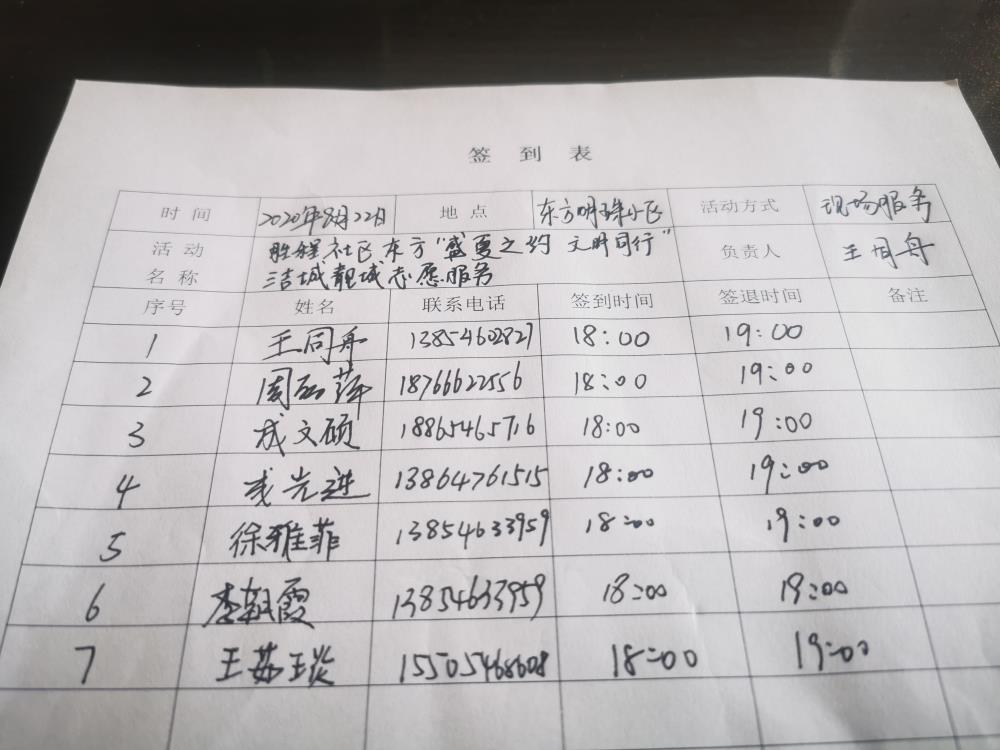 签到表
时间 2020年8月22日 地点 东方明珠小区 活动方式 现场服务
活动名称 胜程社区东方“盛夏之约 文明同行” 负责人 王同舟
洁城靓城志愿服务
序号 姓名 联系电话 签到时间 签退时间 备注
1 王同舟 13854602827 18:00 19:00
2 周石萍 18766622556 18:00 19:00
3 成文硕 18865465716 18:00 19:00
4 成先进 13864761515 18:00 19:00
5 徐雅菲 13854633959 18:00 19:00
6 李朝霞 13854633959 18:00 19:00
7 王茹琰 15505468608 18:00 19:00